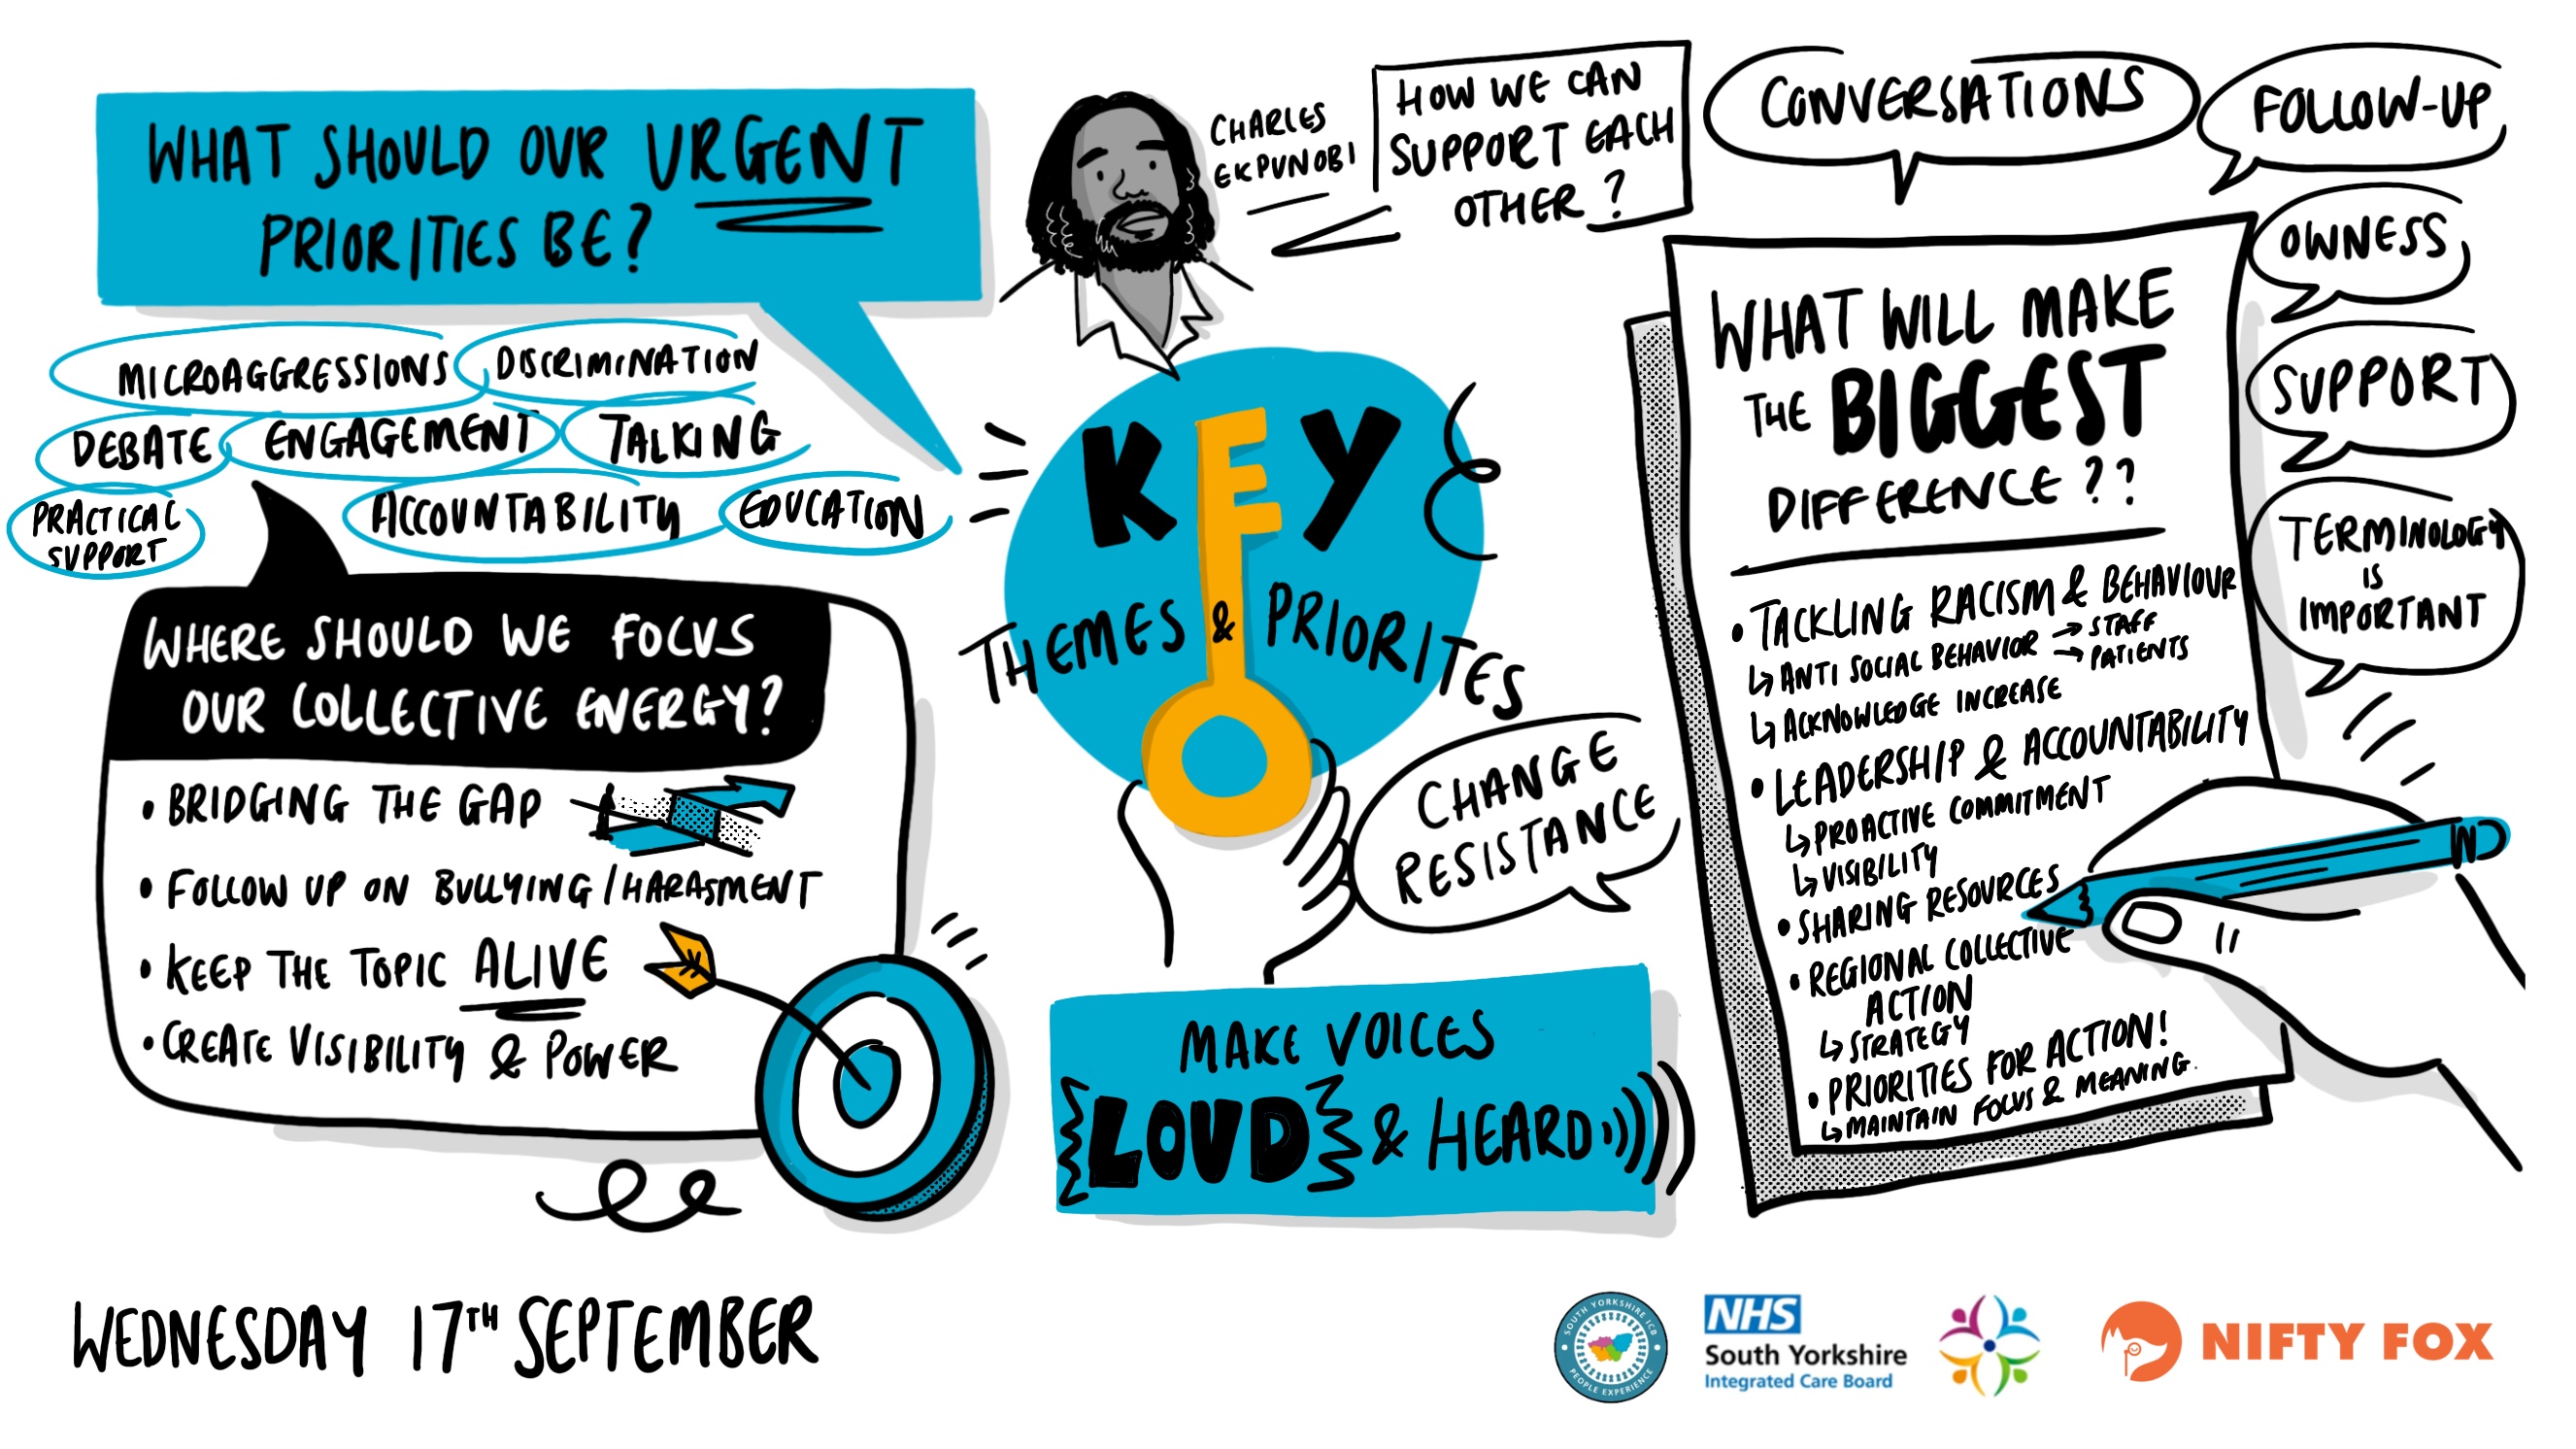 WHAT SHOULD OUR URGENT
PRIORITIES BE?
MICROAGGRESSIONS
DISCRIMINATION
DEBATE
ENGAGEMENT
TALKING
PRACTICAL
SUPPORT
ACCOUNTABILITY
EDUCATION
WHERE SHOULD WE FOCUS
OUR COLLECTIVE ENERGY?
• BRIDGING THE GAP
• FOLLOW UP ON BULLYING/HARASMENT
• KEEP THE TOPIC ALIVE
• CREATE VISIBILITY & POWER
CHARLES
EKPUNOBI
HOW WE CAN
SUPPORT EACH
OTHER?
KEY
THEMES & PRIORITES
CHANGE
RESISTANCE
MAKE VOICES
LOUD & HEARD
CONVERSATIONS
FOLLOW-UP
OWNESS
SUPPORT
TERMINOLOGY
IS
IMPORTANT
WHAT WILL MAKE
THE BIGGEST
DIFFERENCE??
• TACKLING RACISM & BEHAVIOUR
↳ ANTI SOCIAL BEHAVIOR → STAFF
→ PATIENTS
↳ ACKNOWLEDGE INCREASE
• LEADERSHIP & ACCOUNTABILITY
↳ PROACTIVE COMMITMENT
↳ VISIBILITY
• SHARING RESOURCES
• REGIONAL COLLECTIVE
ACTION
↳ STRATEGY
• PRIORITIES FOR ACTION!
↳ MAINTAIN FOCUS & MEANING.
WEDNESDAY 17TH SEPTEMBER
SOUTH YORKSHIRE ICB
PEOPLE EXPERIENCE
NHS
South Yorkshire
Integrated Care Board
NIFTY FOX